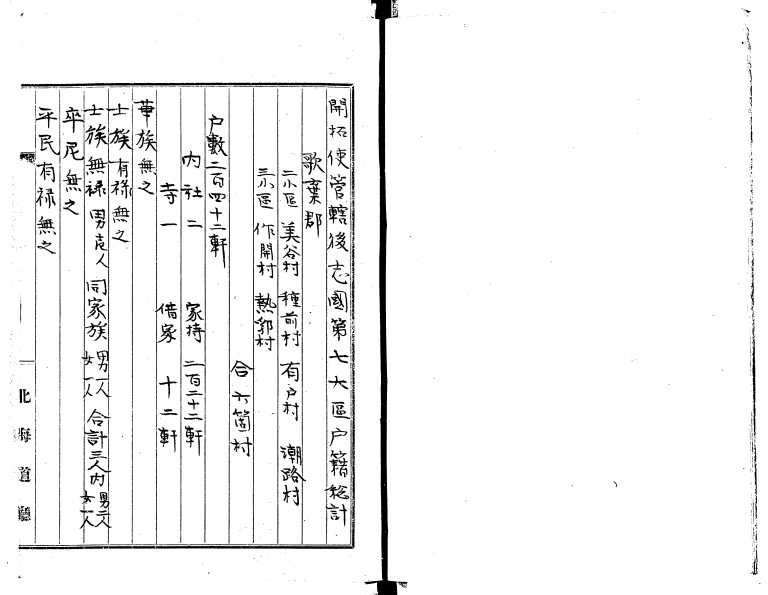 開拓使管轄後志國第七大區戸籍総計
歌棄郡
二小區 美谷村 種前村 有戸村 潮路村
三小區 作開村 熱郛村
合六箇村
戸數二百四十二軒
内社二 家持 二百二十二軒
寺一 借家 十二軒
華族無之
士族有禄無之
士族無禄 男壱人 同家族 男一人 女一人 合計三人内 男二人 女一人
卒尼無之
平民有禄無之
北海道廳